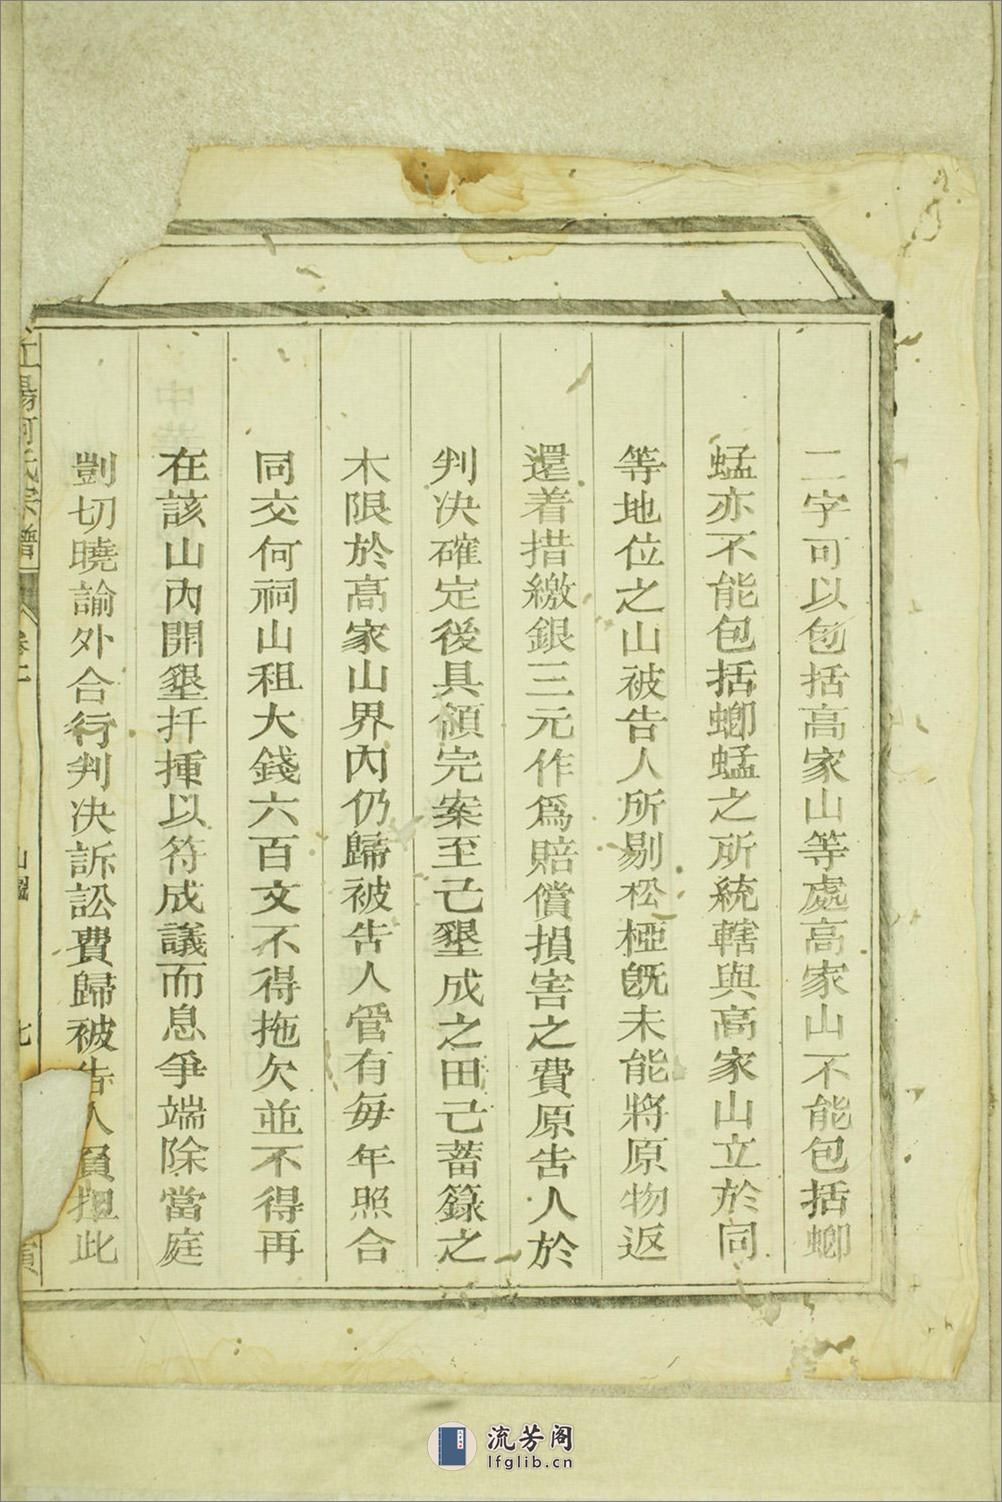 二字可以包括高家山等處高家山不能包括螂
蜢亦不能包括螂蜢之所統轄與高家山立於同
等地位之山被告人所剔松椏旣未能將原物返
還着措繳銀三元作爲賠償損害之費原告人於
判决確定後具領完案至己墾成之田己蓄籙之
木限於高家山界內仍歸被告人管有每年照合
同交何祠山租大錢六百文不得拖欠並不得再
在該山內開墾扦揰以符成議而息爭端除當庭
剴切曉諭外合行判决訴訟費歸被告人負担此
江陽何氏宗譜 卷二
流芳阁
lfglib.cn